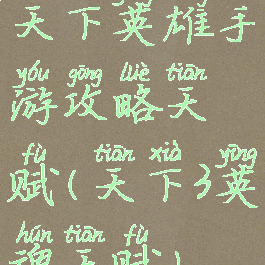 天下英雄手
yóu gōng lüè tiān
游攻略天
fù tiān xià yīng
赋(天下3英
hún tiān fù
魂天赋)